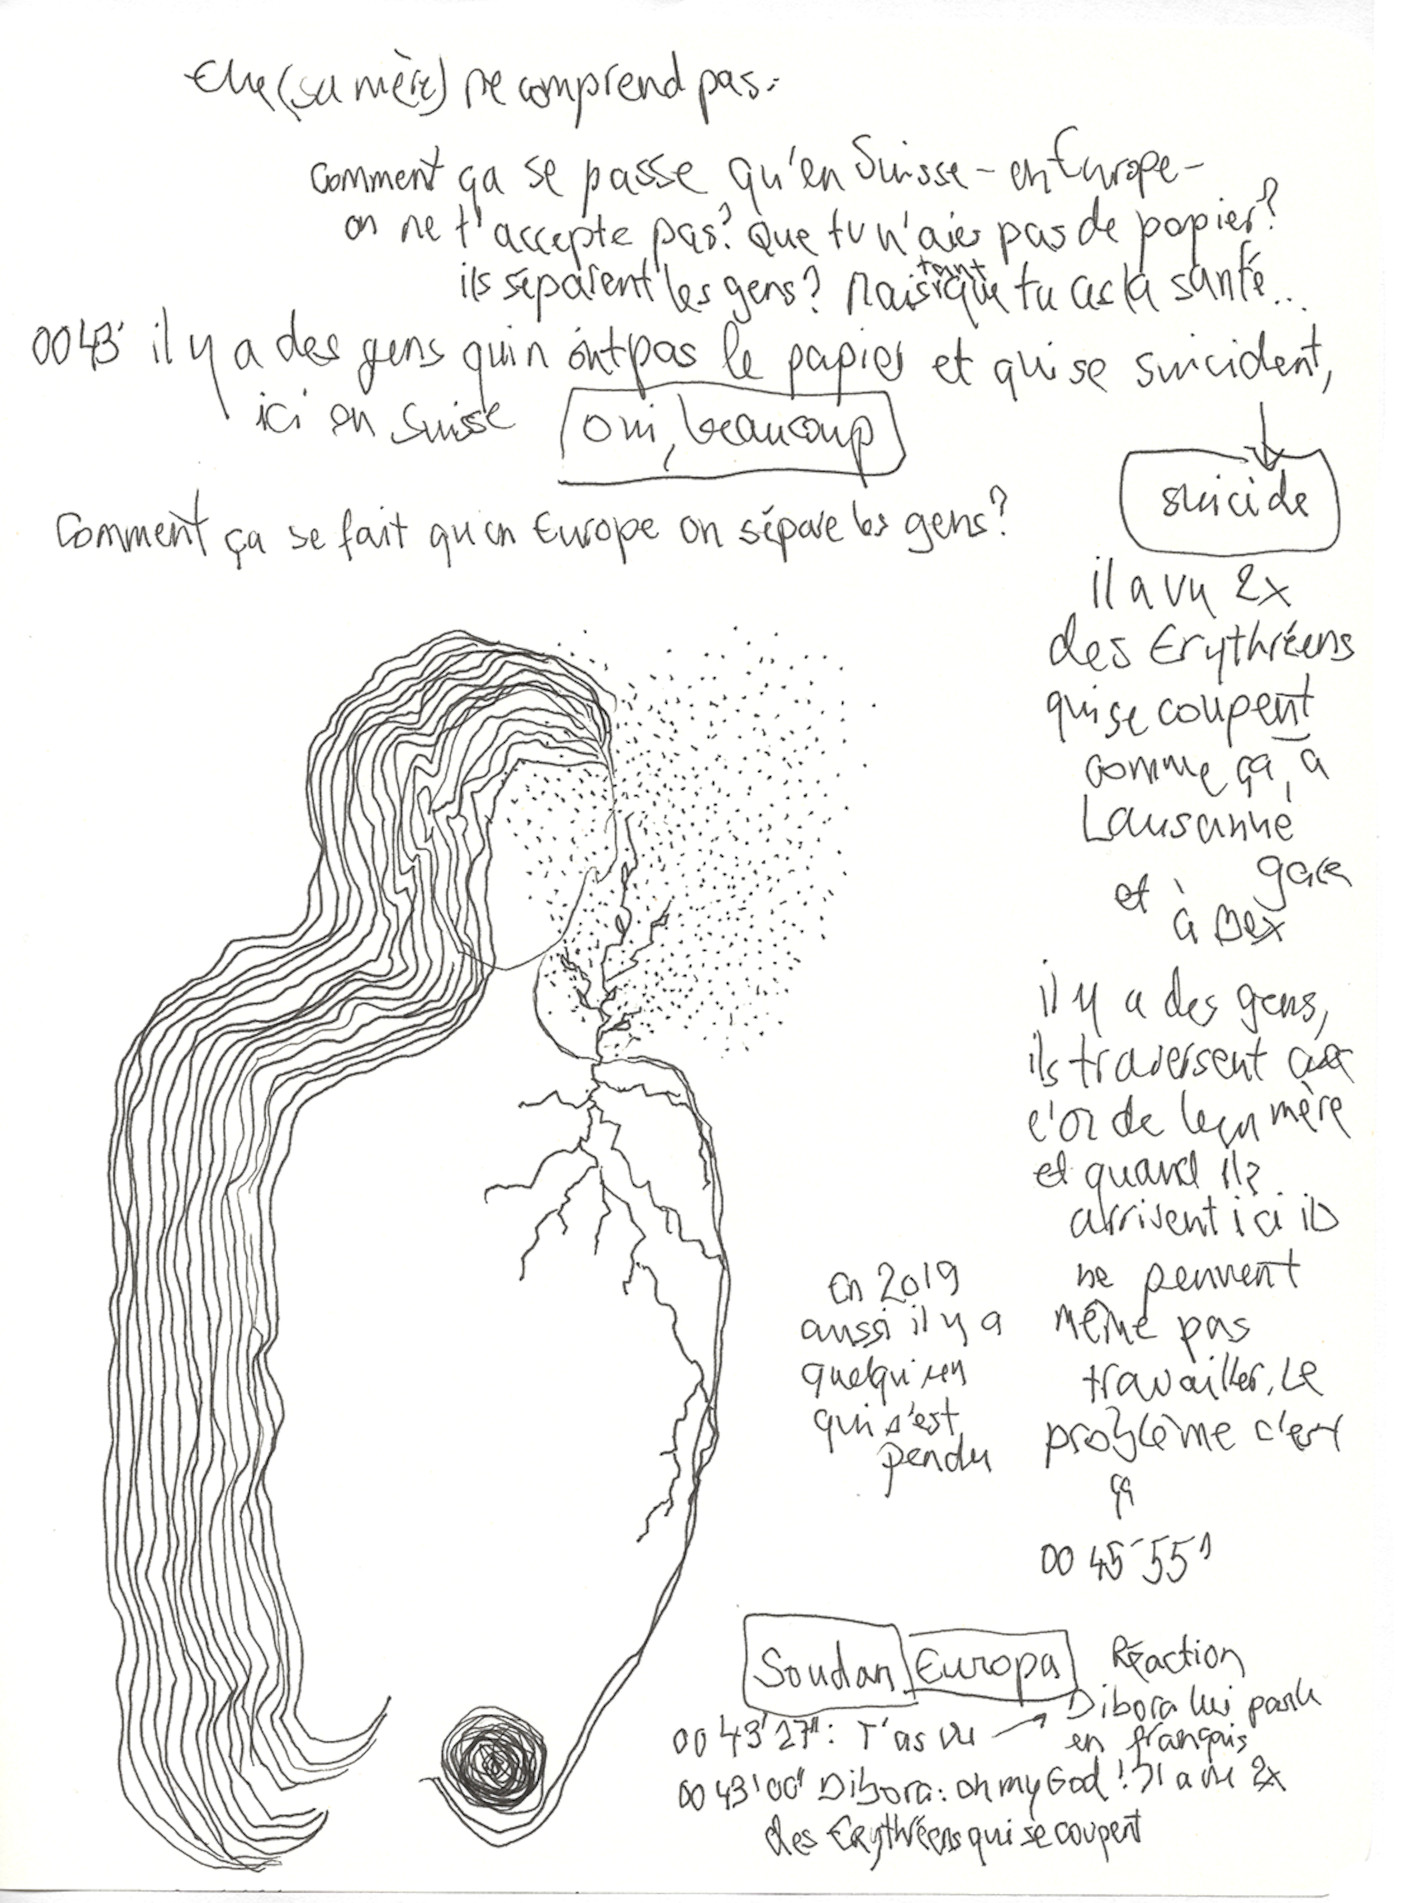 Elle (sa mère) ne comprend pas:
comment ça se passe qu'en Suisse - en Europe -
on ne t'accepte pas? Que tu n'aies pas de papier?
ils séparent les gens? Mais tant que tu as la santé...
00 43' il y a des gens qui n'ont pas le papier et qui se suicident,
ici en Suisse oui, beaucoup
suicide
Comment ça se fait qu'en Europe on sépare les gens?
il a vu 2x
des Erythréens
qui se coupent
comme ça, à
Lausanne
gare
et à Bex
il y a des gens,
ils traversent
l'or de leur mère
et quand ils
arrivent ici ils
ne peuvent
même pas
travailler. Le
problème c'est
ça
00 45' 55"
En 2019
aussi il y a
quelqu'un
qui s'est
pendu
Soudan Europa
Réaction
Dibora lui parle
en français
00 43' 27": T'as vu
00 43' 00" Dibora: oh my God! Il a vu 2x
des Erythréens qui se coupent